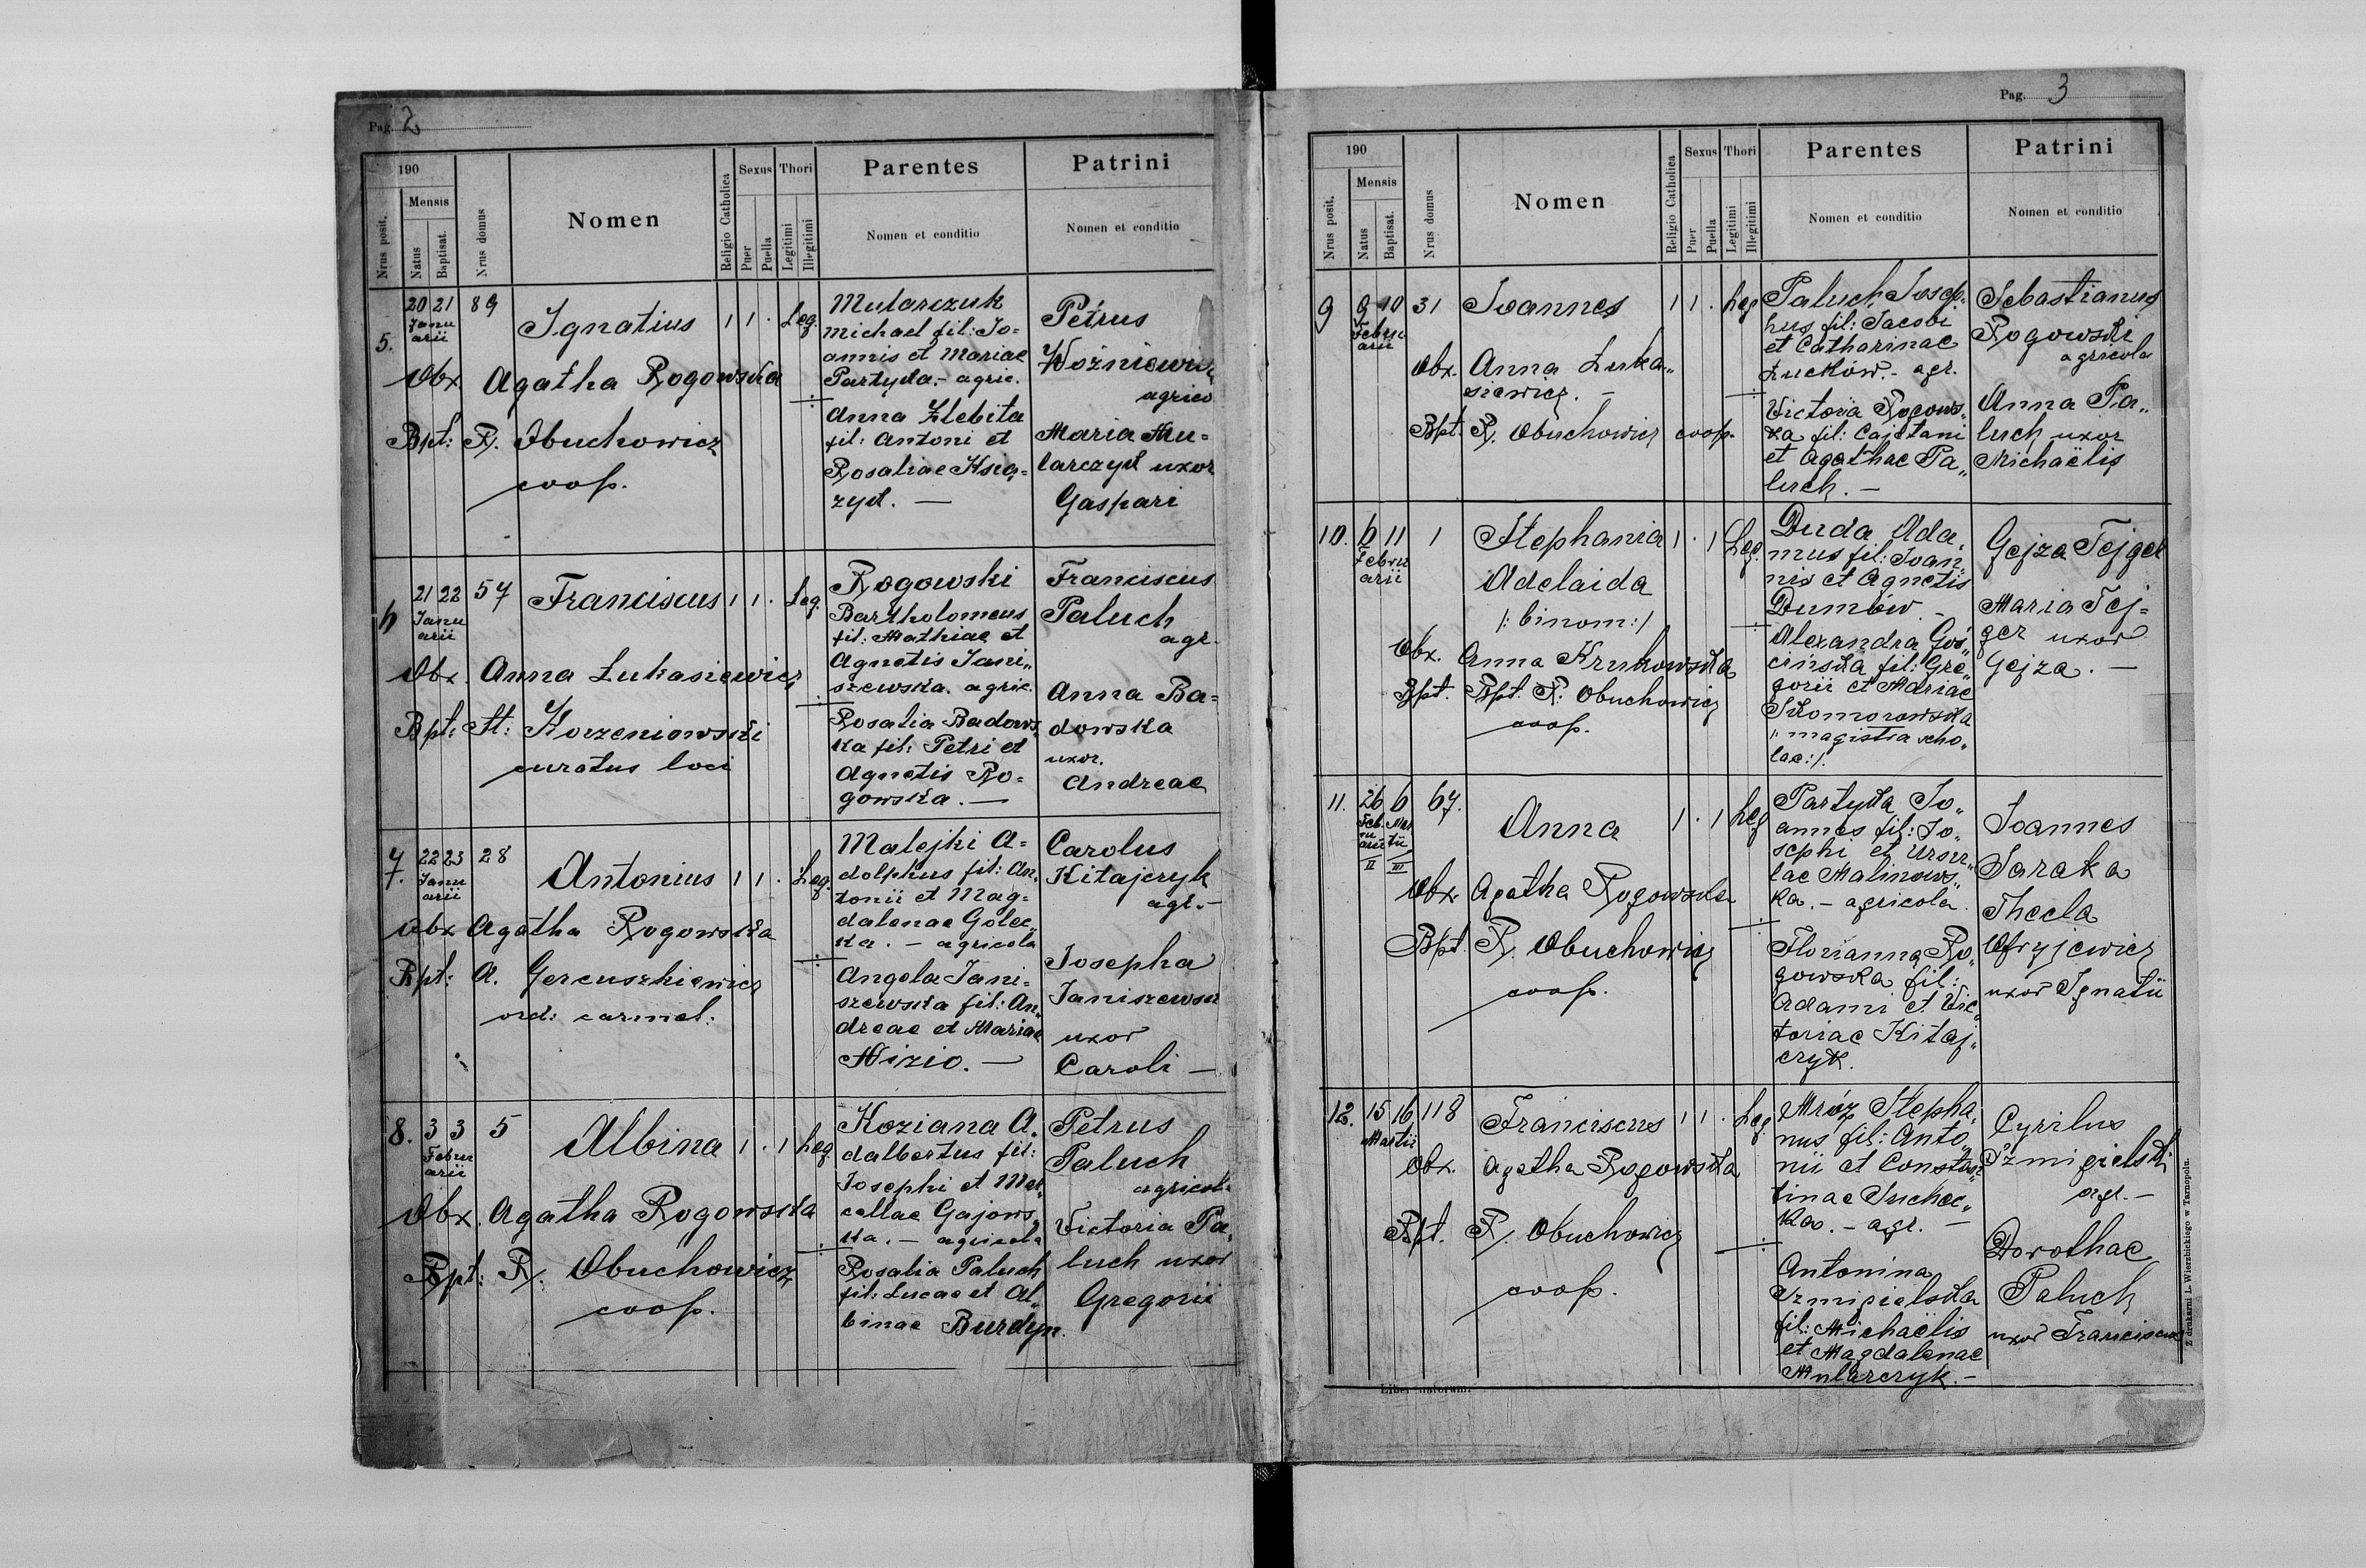 Pag. 2
190
Nrus posit.
Mensis
Natus
Baptisat.
Nrus domus
Nomen
Religio Catholica
Sexus
Puer
Puella
Thori
Legitimi
Illegitimi
Parentes
Nomen et conditio
Patrini
Nomen et conditio
5.
20 21
Janu
arii
89
Ignatius
1 1 .
Leg.
Obx Agatha Rogowska
Bpt: R. Obuchowicz
coop.
Mularczuk
Michael fil: Jo=
annis et Mariae
Partyka.- agric.
Anna Zlebita
fil: Antoni et
RosaliaeKsią=
zyk. —
Petrus
Woźniewicz
agrico
Maria Mu=
larczyk uxor
Gaspari
6
21 22
Janu
arii
57
Franciscus
1 1 .
Leg.
Obx. Anna Łukasiewicz
Bpt: St: Korzeniowski
curatus loci
Rogowski
Bartholomeus
fil: Mathiae et
Agnetis Jani„
szewska. agric.
Rosalia Badows„
ka fil: Petri et
Agnetis Ro=
gowska. —
Franciscus
Paluch
agr.
Anna Ba=
dowska
uxor.
Andreae
7.
22 23
Janu
arii
28
Antonius
1 1 .
Leg.
Obx Agatha Rogowska
Bpt: A. Gercuszkiewicz
ord: carmel:
Malejki A=
dolphus fil: An„
tonii et Mag=
dalenae Golec„
ka. - agricola
Angela Jani=
szewska fil: An„
dreae et Mariae
Nizio. —
Carolus
Kitajczyk
agr.-
Josepha
Janiszewsk
uxor
Caroli —
8.
3 3
Febru
arii
5
Albina
1 . 1
Leg
Obx. Agatha Rogowska
Bpt: R. Obuchowicz
coop.
Koziana A„
dalbertus fil:
Josephi et Mar„
cellae Gajows„
ka. - agricola
Rosalia Paluch
fil: Lucae et Al„
binae Burdyn.
Petrus
Paluch
agricola
Victoria Pa„
luch uxor
Gregorii
Pag. 3
190
Nrus posit.
Mensis
Natus
Baptisat.
Nrus domus
Nomen
Religio Catholica
Sexus
Puer
Puella
Thori
Legitimi
Illegitimi
Parentes
Nomen et conditio
Patrini
Nomen et conditio
9
9 10
Febru
arii
31
Joannes
1 1 .
Leg
Obx. Anna Łuka„
siewicz. -
Bpt. R. Obuchowicz coop.
Paluch Josep„
hus fil: Jacobi
et Catharinae
Łucków.- agr.
Victoria Rogows„
ka fil: Cajetani
et Agathae Pa„
luch. —
Sebastianus
Rogowski
agricola
Anna Pa„
luch uxor
Michaëlis
10.
6 11
Febru
arii
1
Stephania
Adelaida
/: binom :/
1 . 1
Leg.
Obx. Anna Krukowska
Bpt. Bpt. R: Obuchowicz
coop.
Duda Ada„
mus fil: Joan„
nis et Agnetis
Dumów -
Alexandra Goś„
cińska fil: Gre„
gorii et Mariae
Skomorowska
/: magistra scho„
lae :/.
Gejza Fejger
Maria Fej=
ger uxor
Gejza. —
11.
26 6
Feb. Mar
ru tii
arii
II III
67.
Anna
1 . 1
Leg
Obx Agatha Rogowska
Bpt. R. Obuchowicz
coop.
Partyka Jo„
annes fil: Jo„
sephi et Ursu„
lae Malinows„
ka. - agricola.
Florianna Ro„
gowska fil:
Adami et Vic„
toriae Kitaj„
czyk.
Joannes
Saraka
Thecla
uxor Ignatii
12.
15 16
Martii
118
Franciscus
1 1 .
Leg
Obx. Agatha Rogowska
Bpt. R. Obuchowicz
coop.
Mróz Stepha„
nus fil: Anto„
nii et Constan„
tinae Suchec„
ka. - agr. -
Antonina
Szmigielska
fil: Michaëlis
et Magdalenae
Mularczyk. -
Cyrilus
Szmigielski
agr. -
Dorothae
Paluch
uxor Francisci
Liber natorum.
Z drukarni L. Wierzbickiego w Tarnopolu.